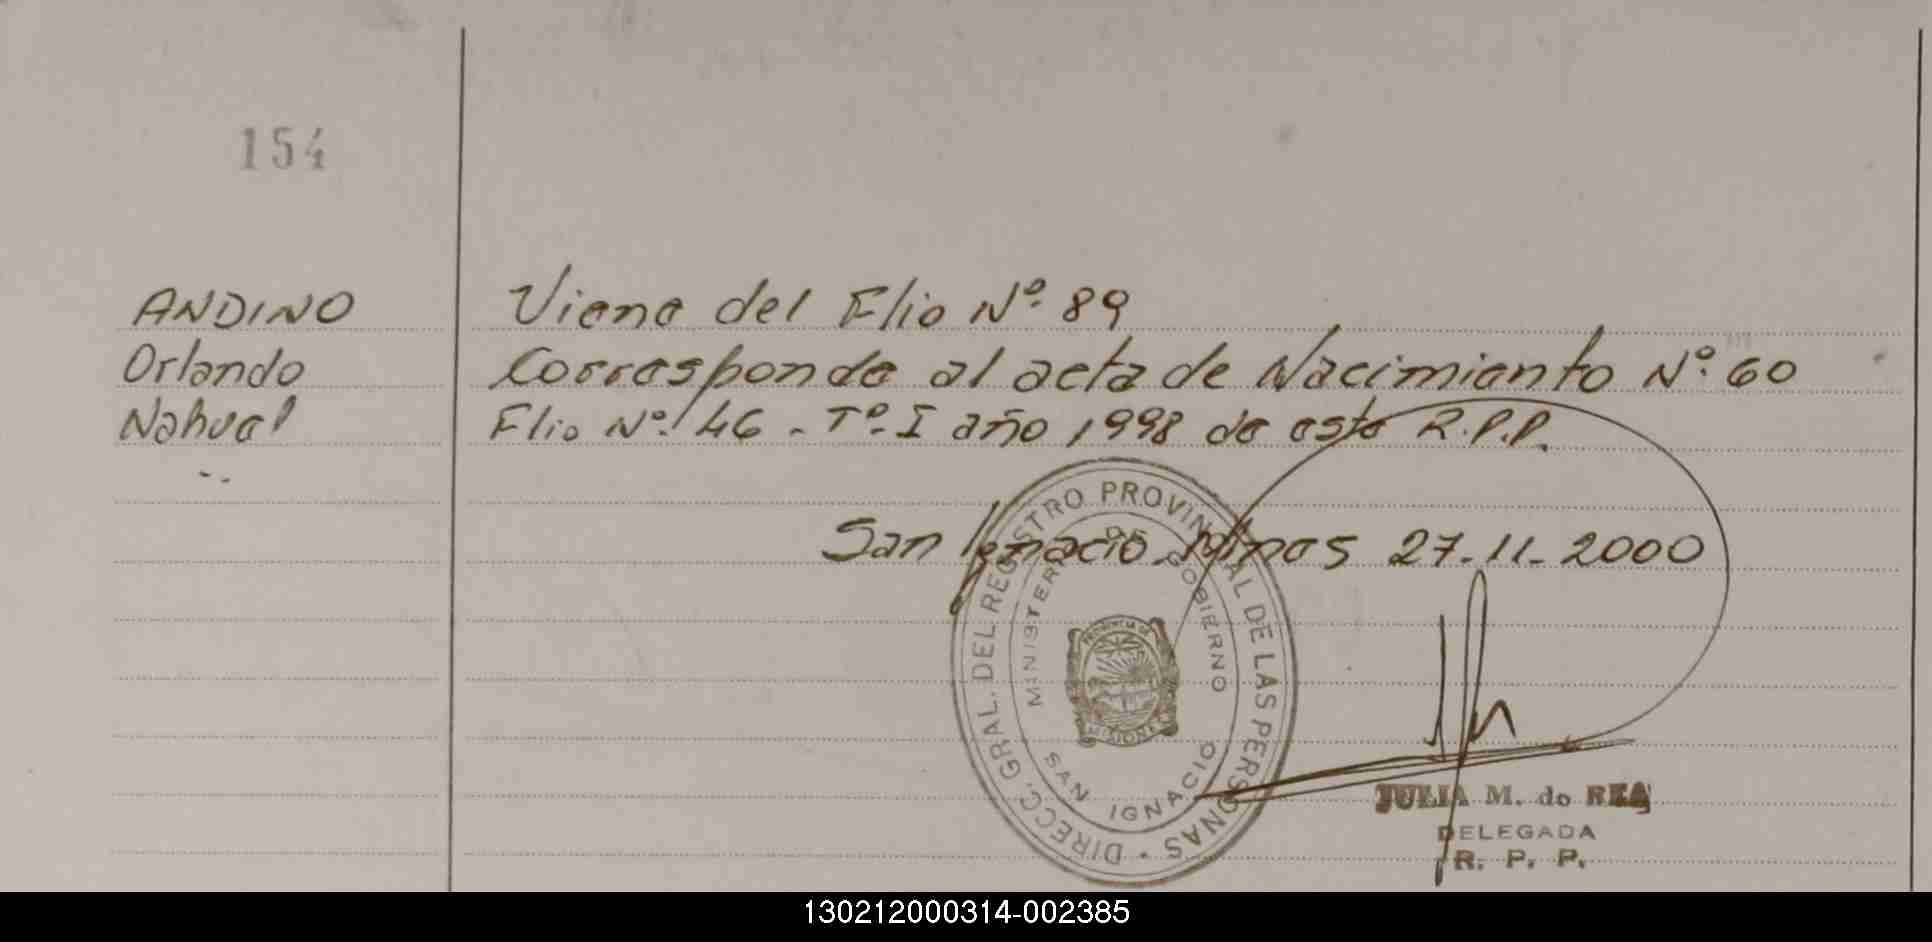 154
ANDINO
Orlando
Nahuel
Viene del Flio Nº 89
Corresponde al acta de Nacimiento Nº 60
Flio Nº 46 - Tº I año 1998 de este R.P.P.
San Ignacio Mnes 27-11-2000
DIRECC. GRAL. DEL REGISTRO PROVINCIAL DE LAS PERSONAS
MINISTERIO DE GOBIERNO
PROVINCIA DE
MISIONES
SAN IGNACIO
JULIA M. de REA
DELEGADA
R. P. P.
130212000314-002385